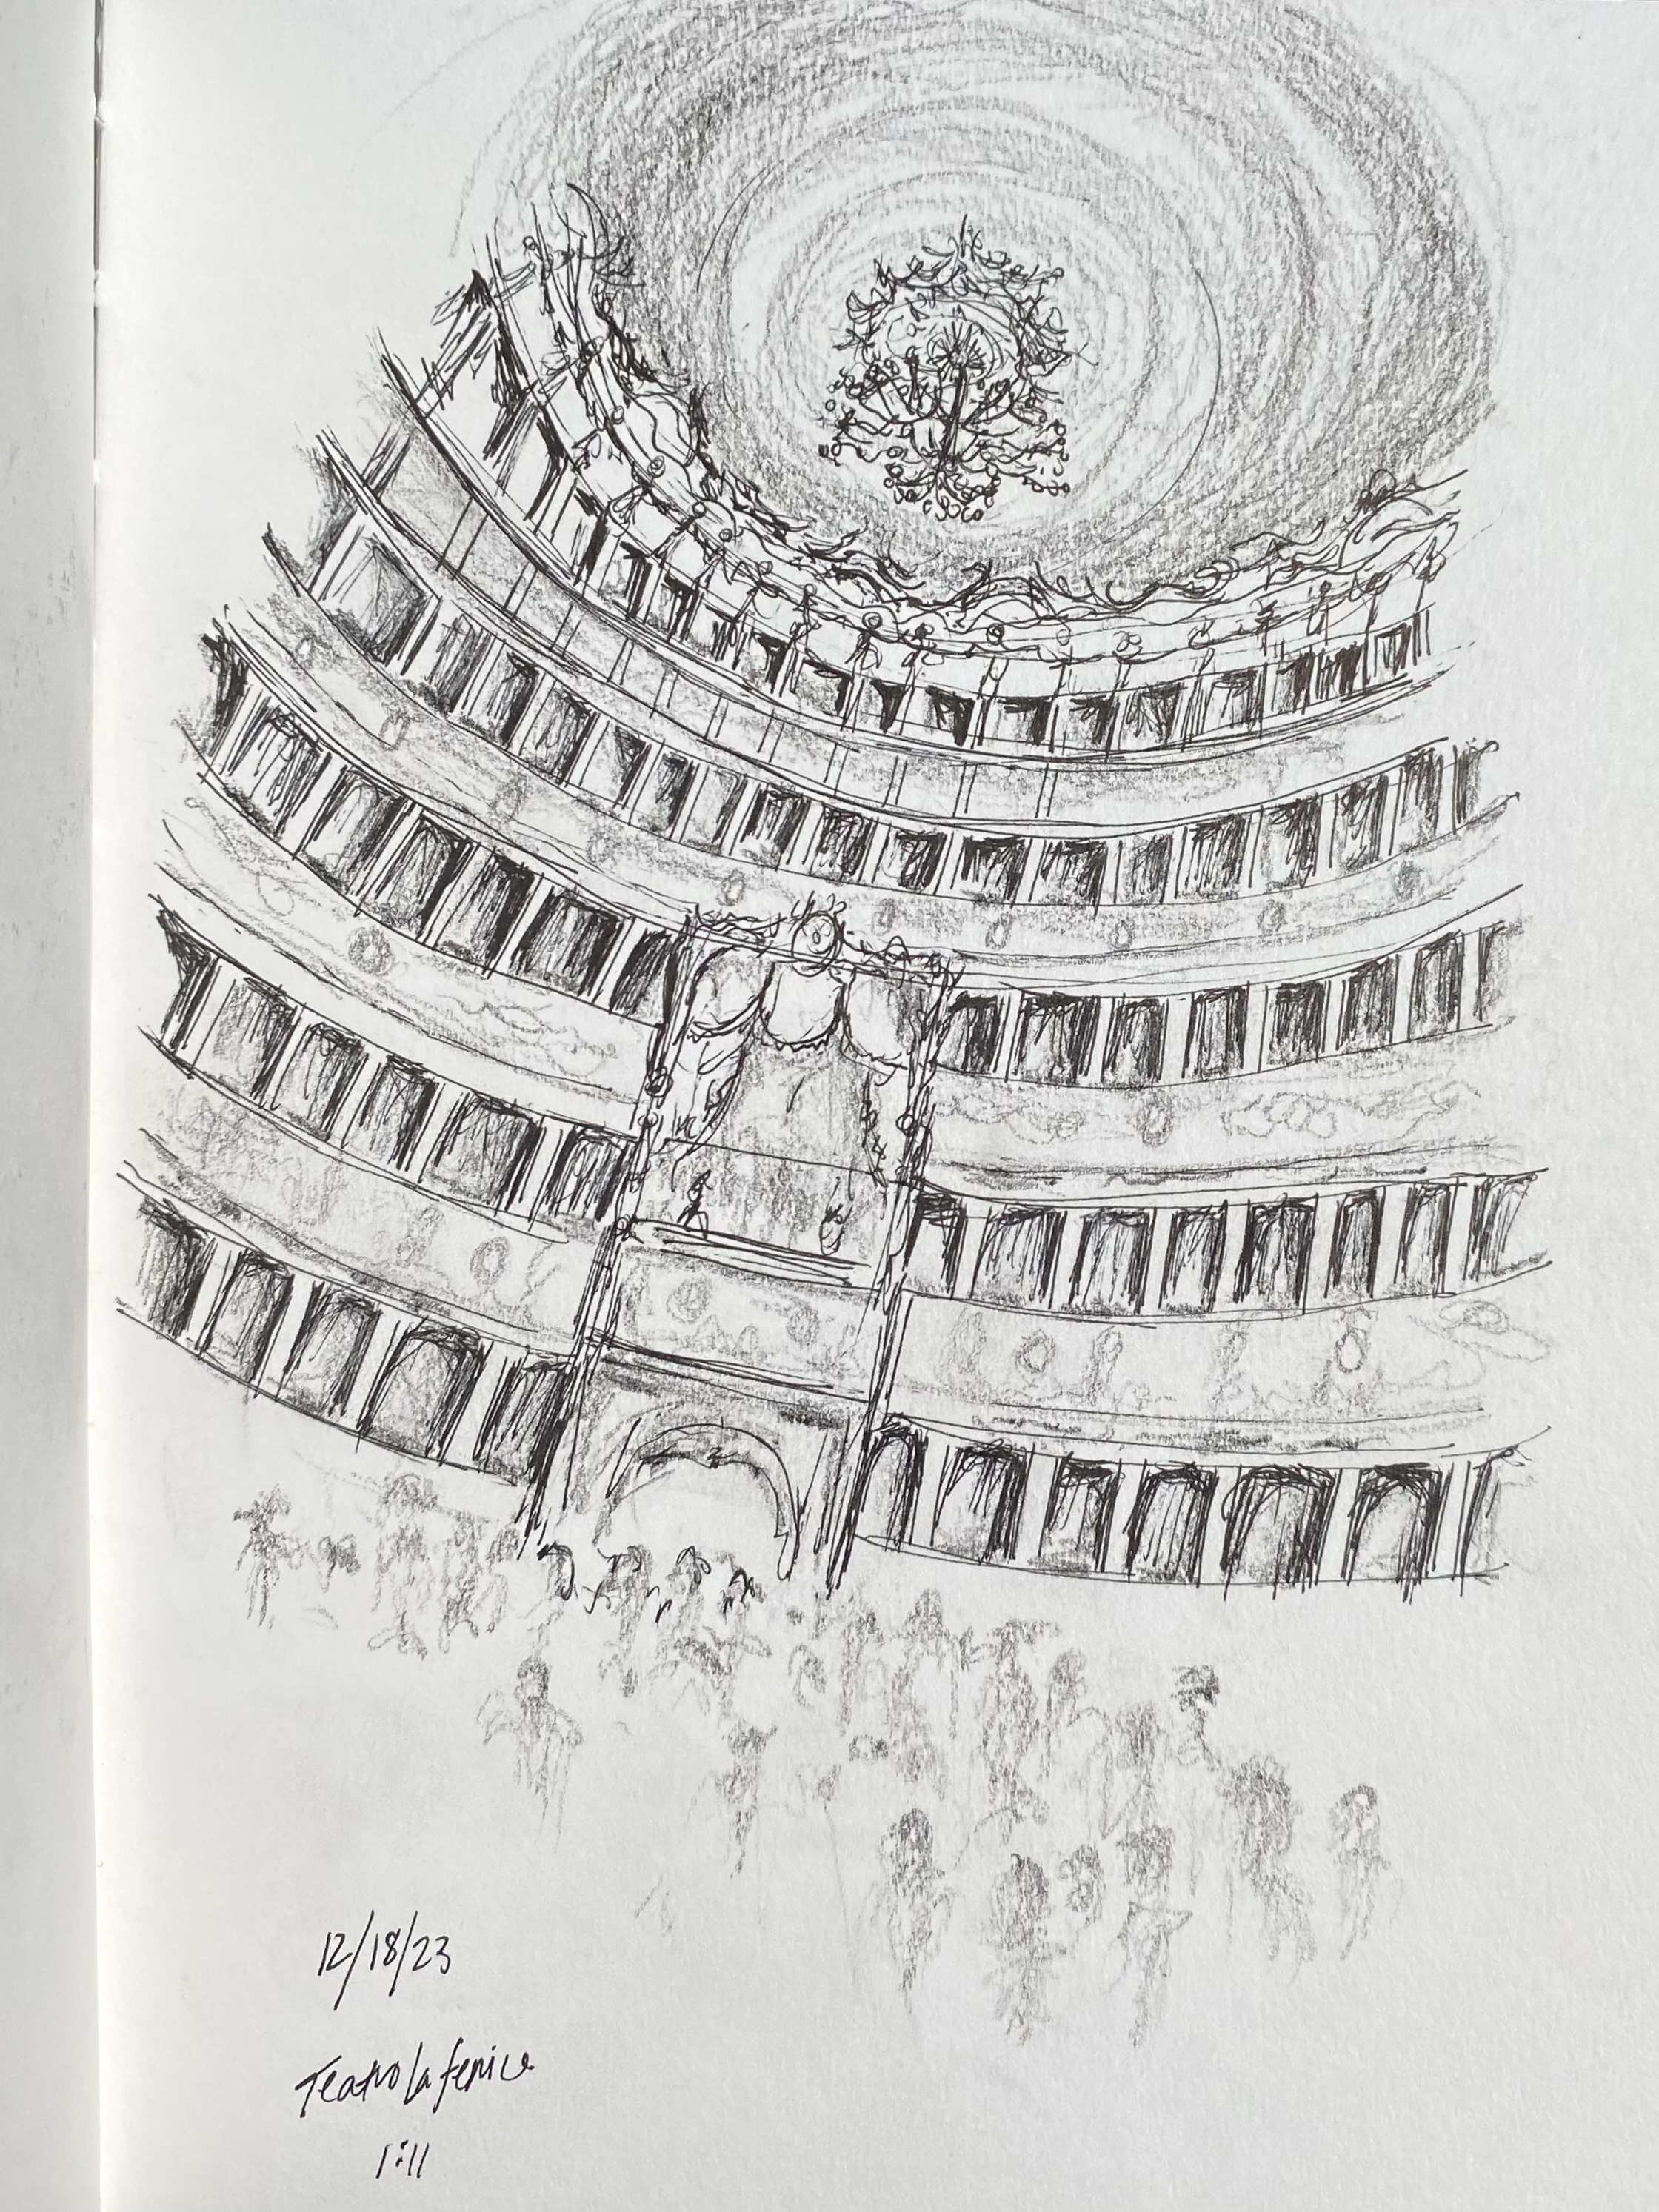 12/18/23
Teatro la fenice
1:11